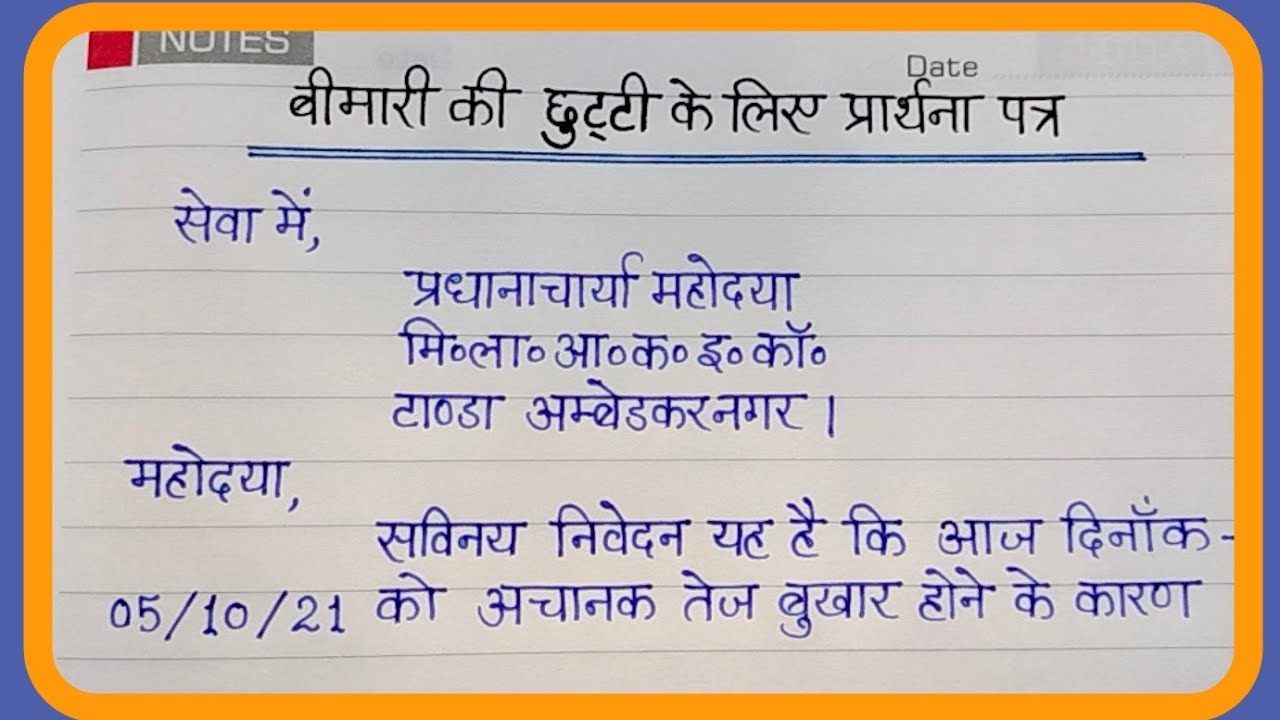 NOTES
Date
बीमारी की छुट्टी के लिए प्रार्थना पत्र
सेवा में,
प्रधानाचार्या महोदया
मि०ला०आ०क०इ०कॉ०
टाण्डा अम्बेडकरनगर।
महोदया,
सविनय निवेदन यह है कि आज दिनाँक-
05/10/21 को अचानक तेज बुखार होने के कारण